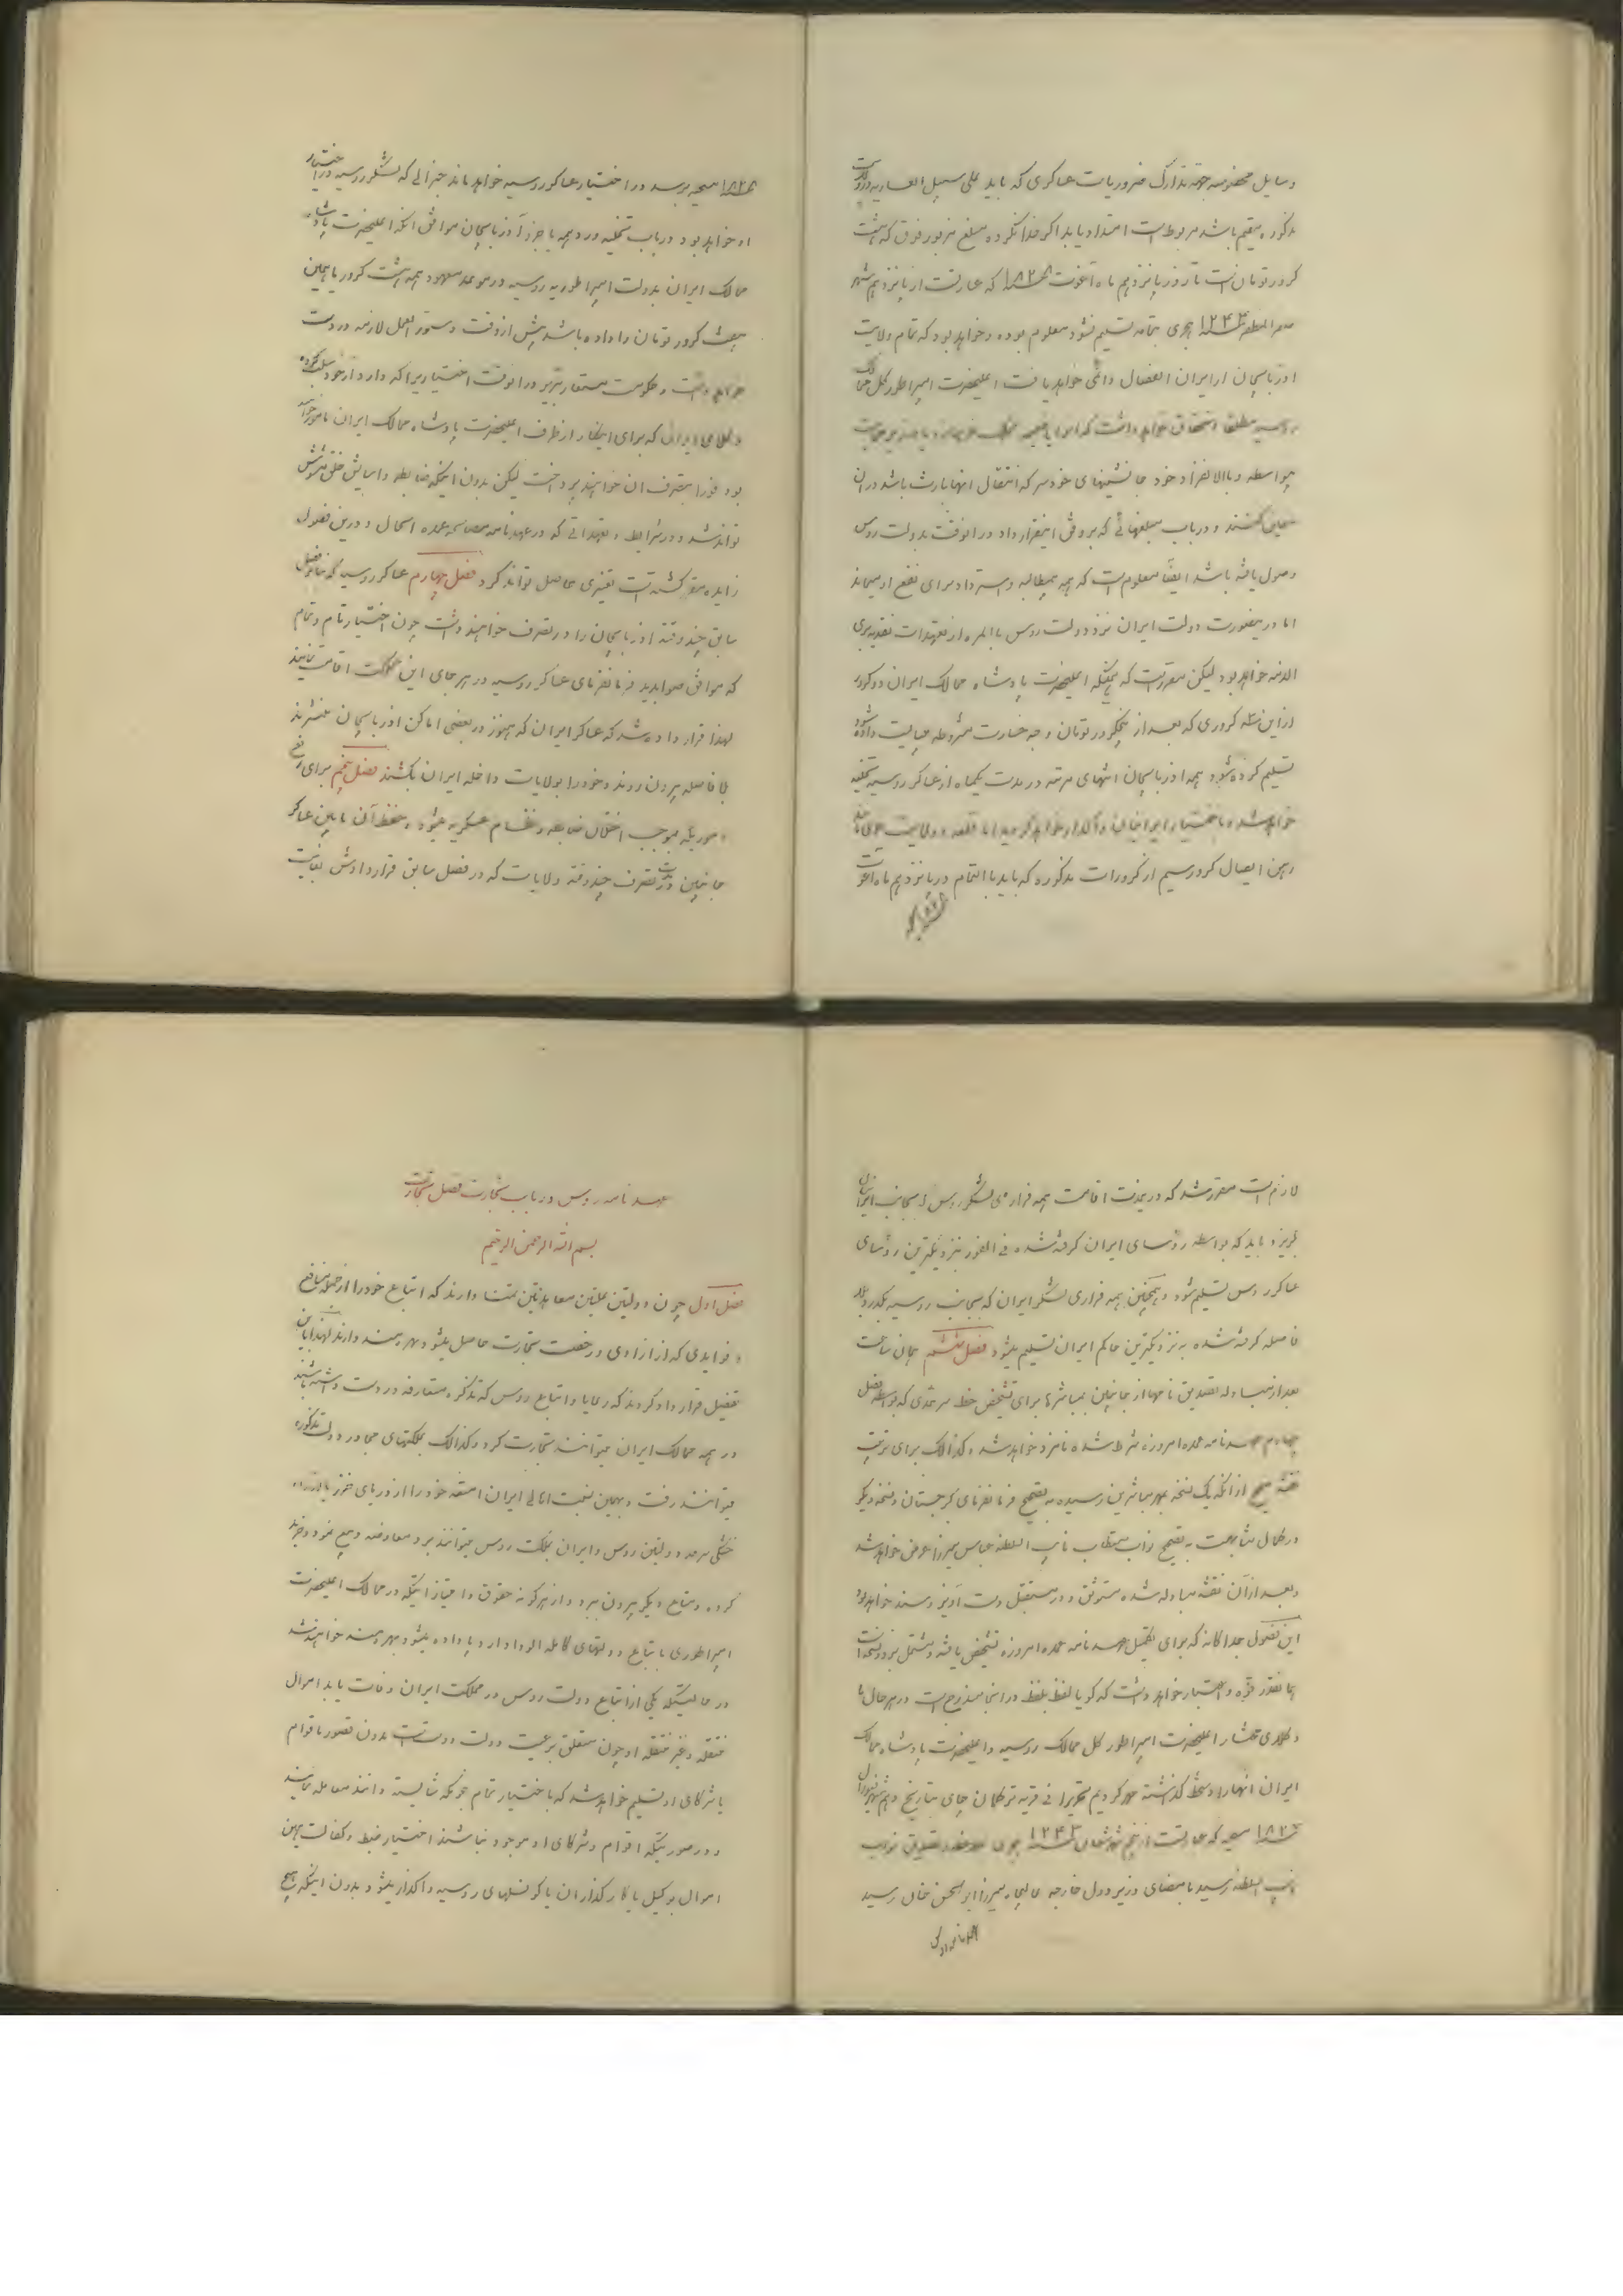 وسایل مخصوصه جهة تدارک ضروریات عساکری که باید علی سبیل العاریه در ولایت
مذکوره مقیم باشد مربوط است امتداد یابد اگر خدا نکرده مبلغ مزبور فوق که هشت
کرور تومان است تا روز پانزدهم ماه آغوست ۱۸۲۸ که عبارتست از پانزدهم شهر
صفر المظفر ۱۲۴۴ هجری بتمامه تسلیم نشود معلوم بوده و خواهد بود که تمام ولایت
اذربایجان از ایران انفصال دائمی خواهد یافت اعلیحضرت امپراطور کل ممالک
روسیه مطلقا استحقاق خواهد داشت که
بیواسطه و بالانفراد خود جانشینهای خودسر که انتقال انها بارث باشد در ان
تعیین کنند و در باب مبلغهائی که بر وفق اینقرارداد در انوقت بدولت روس
وصول یافته باشد ایضا معلوم است که همه بیمطالبه و استرداد برای نفع او میماند
اما در ینصورت دولت ایران نزد دولت روس بالمره از تعهدات نقدیه بری
الذمه خواهد بود لیکن مقرر است که همینکه اعلیحضرت پادشاه ممالک ایران دو کرور
از این سه کروری که بعد از پنجکرور تومان وجه خسارت مشروطه میبایست داده شود
تسلیم کرده شود همه اذربایجان انتهای مرتبه در مدت یکماه از عساکر روسیه تخلیه
خواهد شد و باختیار ایرانیان واگذار خواهد گردید اما قلعه و ولایت خوی
رهن ایصال کرور سیم از کرورات مذکوره که باید بالتمام در پانزدهم ماه اغوست
۱۸۲۸ مسیحیه
۱۸۲۸ مسیحیه برسد در اختیار عساکر روسیه خواهد ماند جنرالی که لشکر روسیه در اختیار
او خواهد بود در باب تخلیه در همه یا جزو آذربایجان موافق انکه اعلیحضرت پادشاه
ممالک ایران بدولت امپراطوریه روسیه در موعد معهود همه هشت کرور یا همین
هفت کرور تومان را داده باشد پیش از وقت دستور العمل لازمه در دست
خواهد داشت و حکومت مستعار تبریز در انوقت اختیاریرا که دارد از خود سلب کرده
وکلای ایرانی که برای اینکار از طرف اعلیحضرت پادشاه ممالک ایران مامور خواهند
بود فورا بتصرف ان خواهند پرداخت لیکن بدون اینکه ضابطه و اسایش خلق مشوش
تواند شد و در شرایط و تعهداتی که در عهدنامه مصالحه عمده اسحال و درین فصول
زایده مقرر گشته است تغییری حاصل تواند کرد فصل چهارم عساکر روسیه که بنا بفصل
سابق چند وقته اذربایجان را در تصرف خواهند داشت چون اختیار تام و تمام
که موافق صوابدید فرمانفرمای عساکر روسیه در هر جای این مملکت اقامت نمایند
لهذا قرارداده شد که عساکر ایران که هنوز در بعضی اماکن اذربایجان منتشرند
بلا فاصله بیرون روند و خود را بولایات داخله ایران بکشند فصل پنجم برای رفع
اموریکه موجب اختلال ضابطه و نظام عسکریه میشود و حفظ آن مابین عساکر
جانبین در مدت تصرف چند وقته ولایات که در فصل سابق قراردادش بغایت
لازم است مقرر شد که در مدت اقامت همه فراری لشکر روس که بجانب ایرانیان
گریزد باید که بواسطه رؤسای ایران گرفته شده فی الفور بنزدیکترین رؤسای
عساکر روس تسلیم شود و همچنین همه فراری لشکر ایران که بجانب روسیه بگذرد بلا
فاصله گرفته شده به نزدیکترین حاکم ایران تسلیم میشود فصل ششم همان ساعت
بعد از مبادله تصدیق نامها از جانبین مباشرها برای تشخیص خط سرحدی که بواسطه فصل
چهارم عهدنامه عمده امروزه شرط شده نامزد خواهد شد و کذالک برای ترتیب
نقشه صحیح از انکه یک نسخه بمهر مباشرین رسیده به تصحیح فرمانفرمای گرجستان و نسخه دیگر
در کمال مشابهت به تصحیح نواب مستطاب نایب السلطنه عباس میرزا عرض خواهد شد
و بعد از آن نقشه مبادله شده متوثق و در مستقبل دست آویز و سند خواهد بود
این فصول جداگانه که برای تکمیل عهدنامه عمده امروزه تشخیص یافته و مشتمل بر دو نسخه است
همانقدر قوه و اعتبار خواهد داشت که گویا لفظ بلفظ در انجا مندرج است و بهر حال ما
وکلای مختار اعلیحضرت امپراطور کل ممالک روسیه و اعلیحضرت پادشاه ممالک
ایران انها را دستخط گذاشته مهر کردیم تحریرا فی قریه ترکمان چای بتاریخ دهم شهر فیورال
۱۸۲۸ مسیحیه که عبارتست از پنجم شهر شعبان ۱۲۴۳ هجری تصدیق نواب
نایب السلطنه رسید بامضای وزیر دول خارجه عالیجاه میرزا ابوالحسن خان رسید
عهدنامه روس در باب تجارت فصل تجارت
بسم الله الرحمن الرحیم
فصل اول چون دولتین علیتین معاهدتین تمنا دارند که اتباع خود را از جمله منافع
و فوایدی که از ازادی و رخصت تجارت حاصل میشود بهره مند دارند لهذا باین
تفصیل قرارداد کردند که رعایا و اتباع روس که تذکره متعارفه در دست داشته باشند
در همه ممالک ایران میتوانند تجارت کرد و کذالک بمملکتهای مجاور دولت مذکوره
میتوانند رفت و بهمین نسبت اهالی ایران امتعه خود را از دریای خزر یا از راه
خشکی سرحد دولتین روس و ایران بمملکت روس میتوانند برد و معاوضه و بیع نمود و خرید
کرده و متاع دیگر بیرون ببرد و از هر گونه حقوق و امتیازاتیکه در ممالک اعلیحضرت
امپراطوری باتباع دولتهای کامله الوداد اروپا داده میشود بهره مند خواهند شد
در حالیتیکه یکی از اتباع دولت روس در مملکت ایران وفات یابد اموال
منقله و غیر منقله او چون متعلق برعیت دولت دوست است بدون قصور باقوام
یا شرکای او تسلیم خواهد شد که باختیار تمام بنحویکه شایسته دانند معامله نمایند
و در صورتیکه اقوام و شرکای او موجود نباشند اختیار ضبط و کفالت همین
اموال بوکیل یا کارگذاران یا کونسلهای روسیه واگذار میشود بدون اینکه هیچ